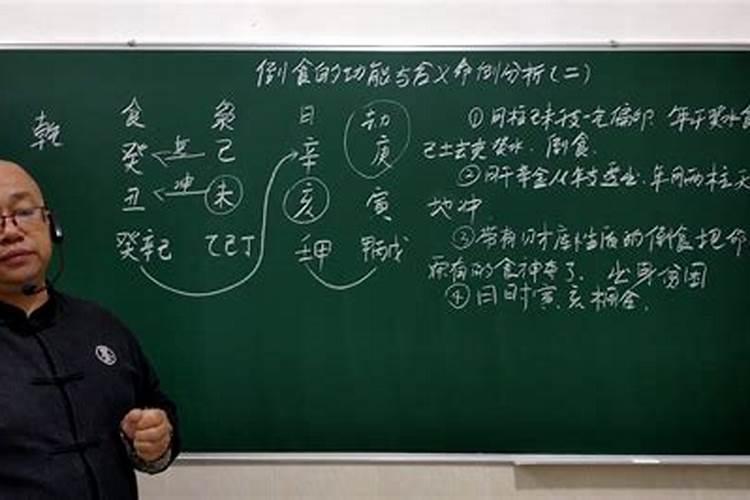 倒食的功能与含义命例分析(二)
乾 食 枭 日 劫
癸 克 己 辛 庚
丑 冲 未 亥 寅
癸辛己 乙己丁 壬甲 甲丙戊
①月柱己未干支一气偏印 年干癸水食
己土去克癸水 倒食
②日干辛金从年支透出 年月两柱天
地冲
③带有 的倒食把命
原有的食神夺了 出身贫困
④日时寅亥相合